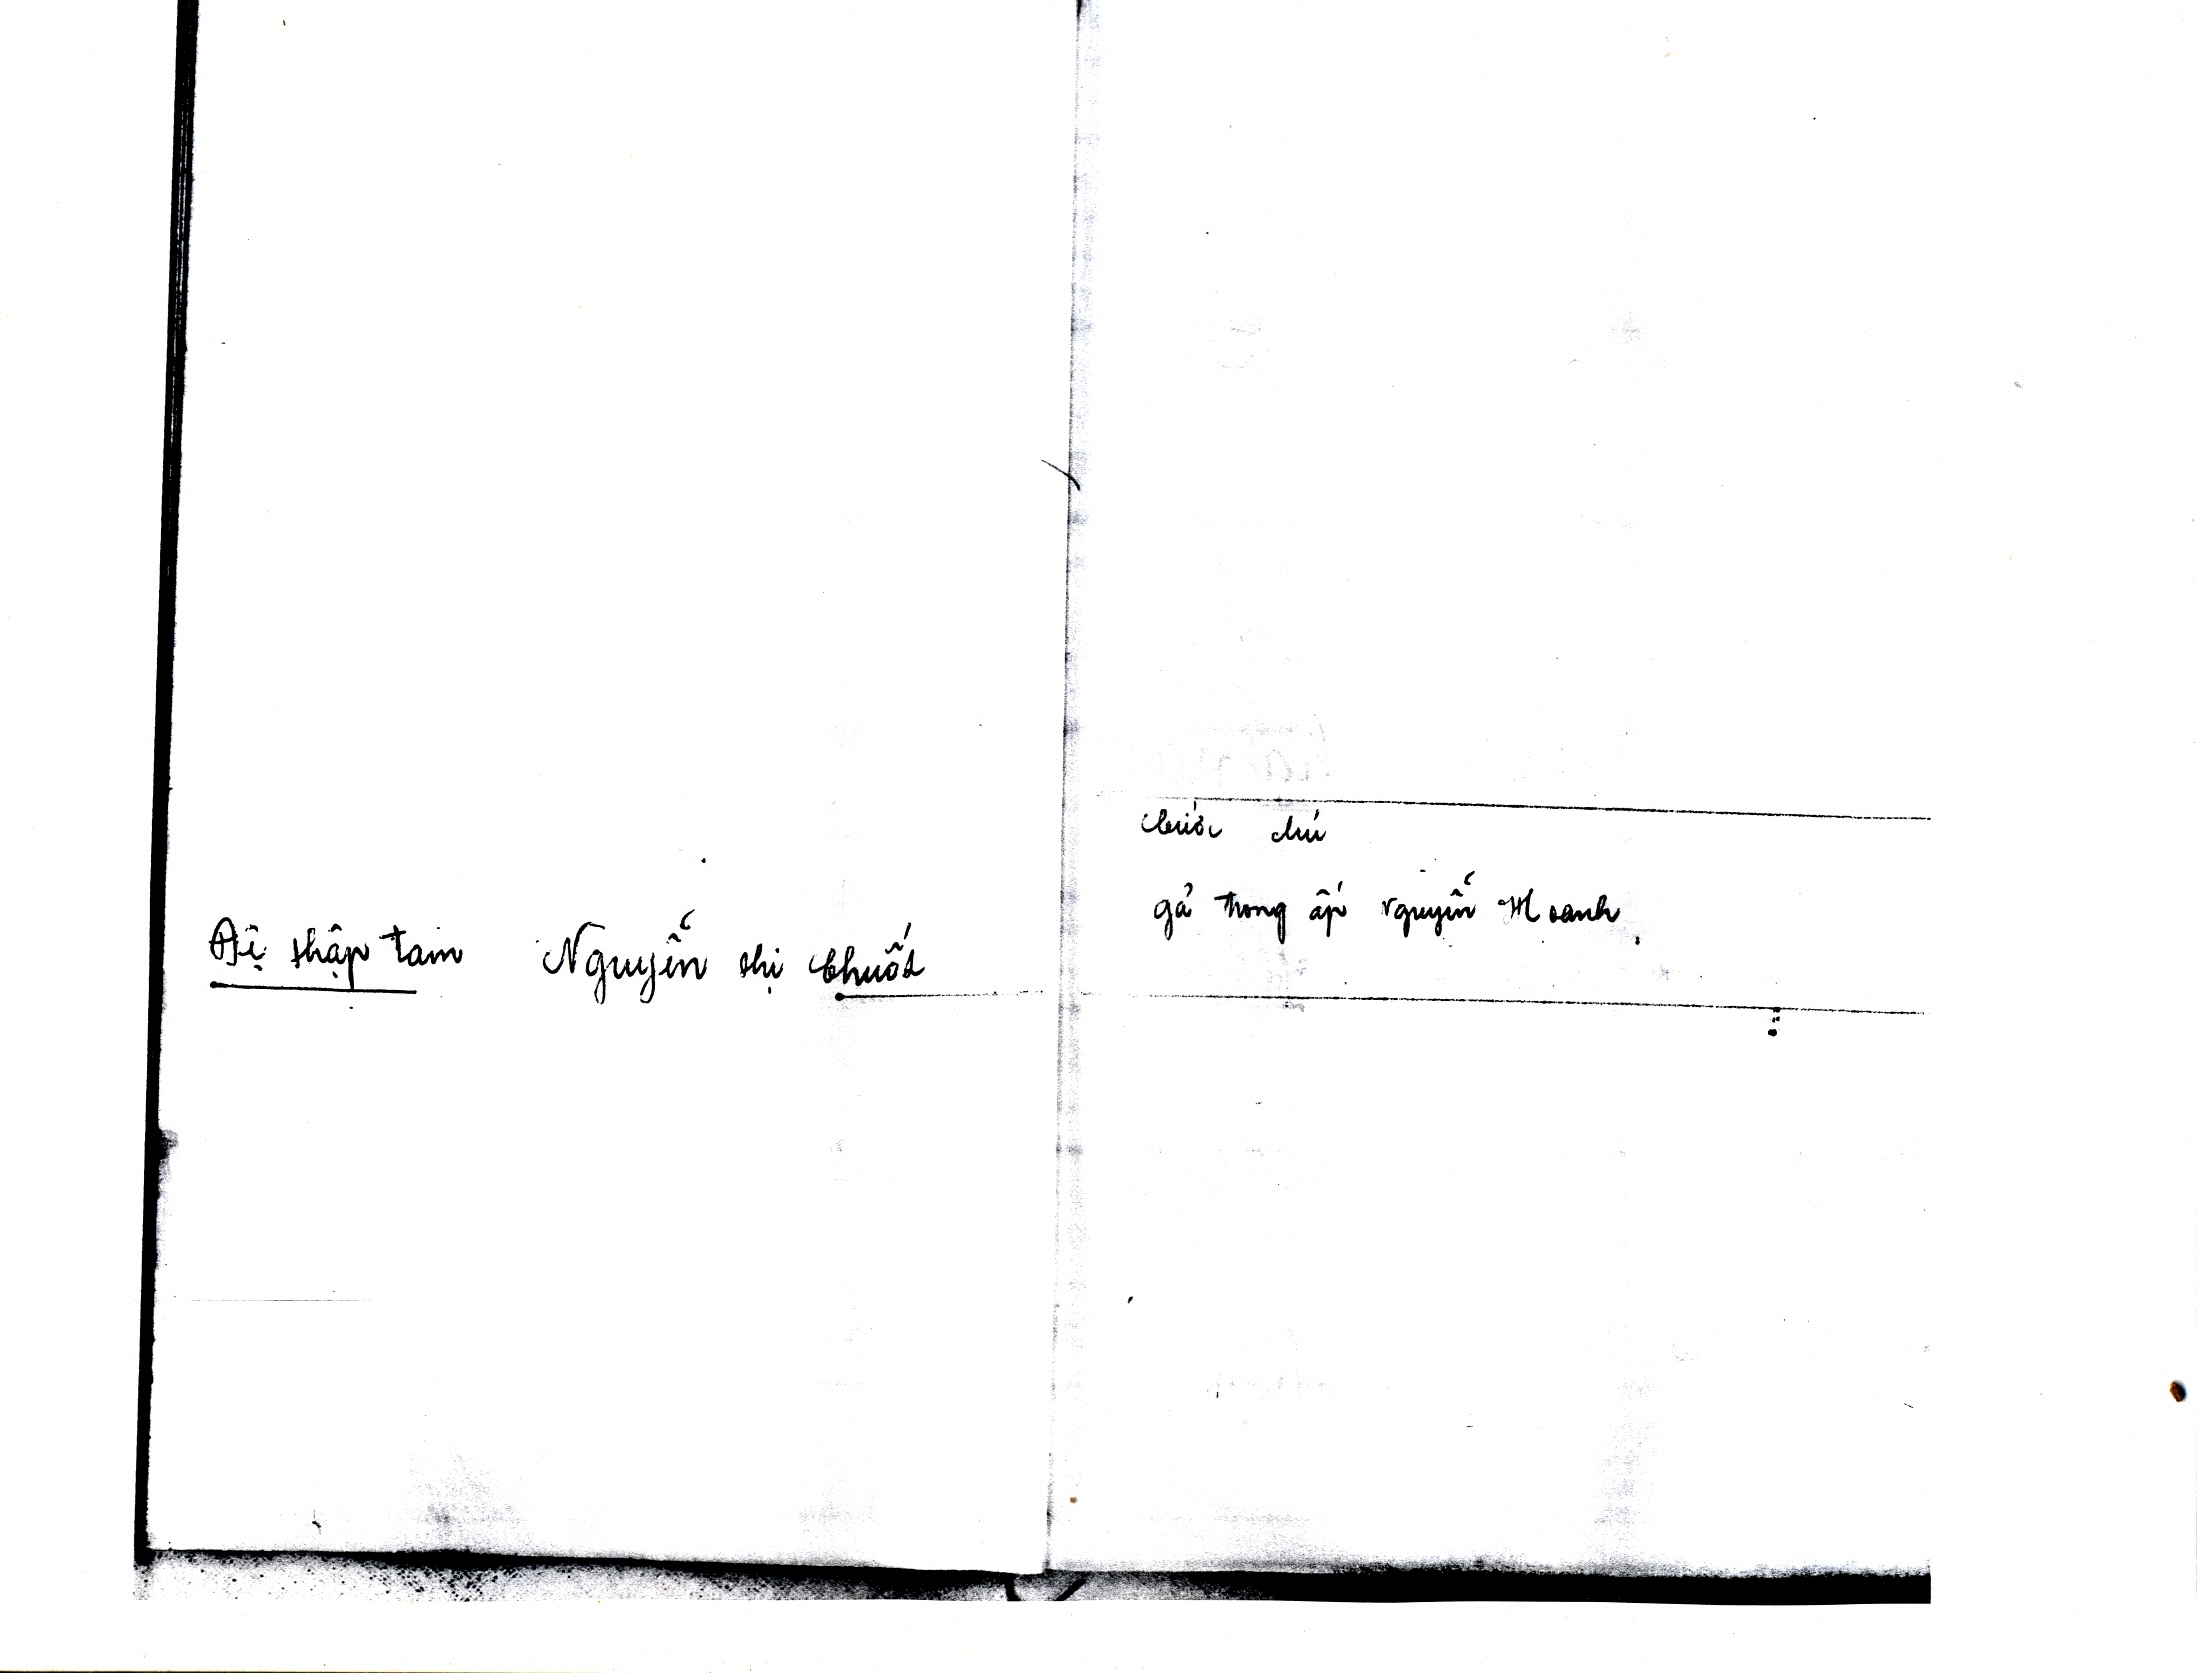 Đệ thập tam Nguyễn thị Chuốt
Cước chú
gả trong ấp Nguyễn Hoanh